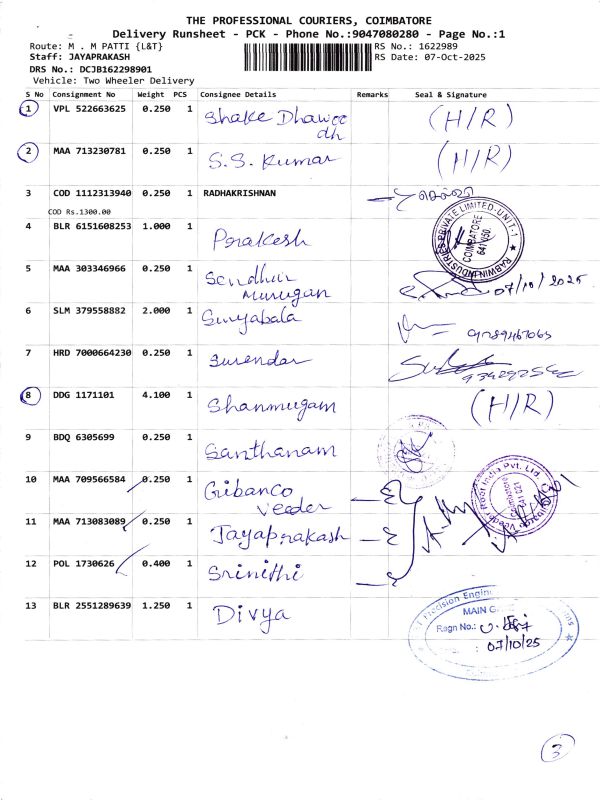 THE PROFESSIONAL COURIERS, COIMBATORE
Delivery Runsheet - PCK - Phone No.:9047080280 - Page No.:1
Route: M . M PATTI {L&T} RS No.: 1622989
Staff: JAYAPRAKASH RS Date: 07-Oct-2025
DRS No.: DCJB162298901
Vehicle: Two Wheeler Delivery
S No Consignment No Weight PCS Consignee Details Remarks Seal & Signature
1 VPL 522663625 0.250 1 Shake Dhawee (H/R)
dh
2 MAA 713230781 0.250 1 S.S. Kumar (H/R)
3 COD 1112313940 0.250 1 RADHAKRISHNAN
COD Rs.1300.00
4 BLR 6151608253 1.000 1 Prakesh
RABWIN INDUSTRIES PRIVATE LIMITED:UNIT-1
COIMBATORE
5 MAA 303346966 0.250 1 Sendhur 07/10/2025
Murugan
6 SLM 379558882 2.000 1 Suryabala
7 HRD 7000664230 0.250 1 Surendar
8 DDG 1171101 4.100 1 Shanmugam (H/R)
9 BDQ 6305699 0.250 1 Santhanam
10 MAA 709566584 0.250 1 Gibanco
Veeder
Veeder Root India Pvt. Ltd
11 MAA 713083089 0.250 1 Jayaprakash
12 POL 1730626 0.400 1 Srinithi
13 BLR 2551289639 1.250 1 Divya
Precision Engine
MAIN G
Regn No.:
07/10/25
3